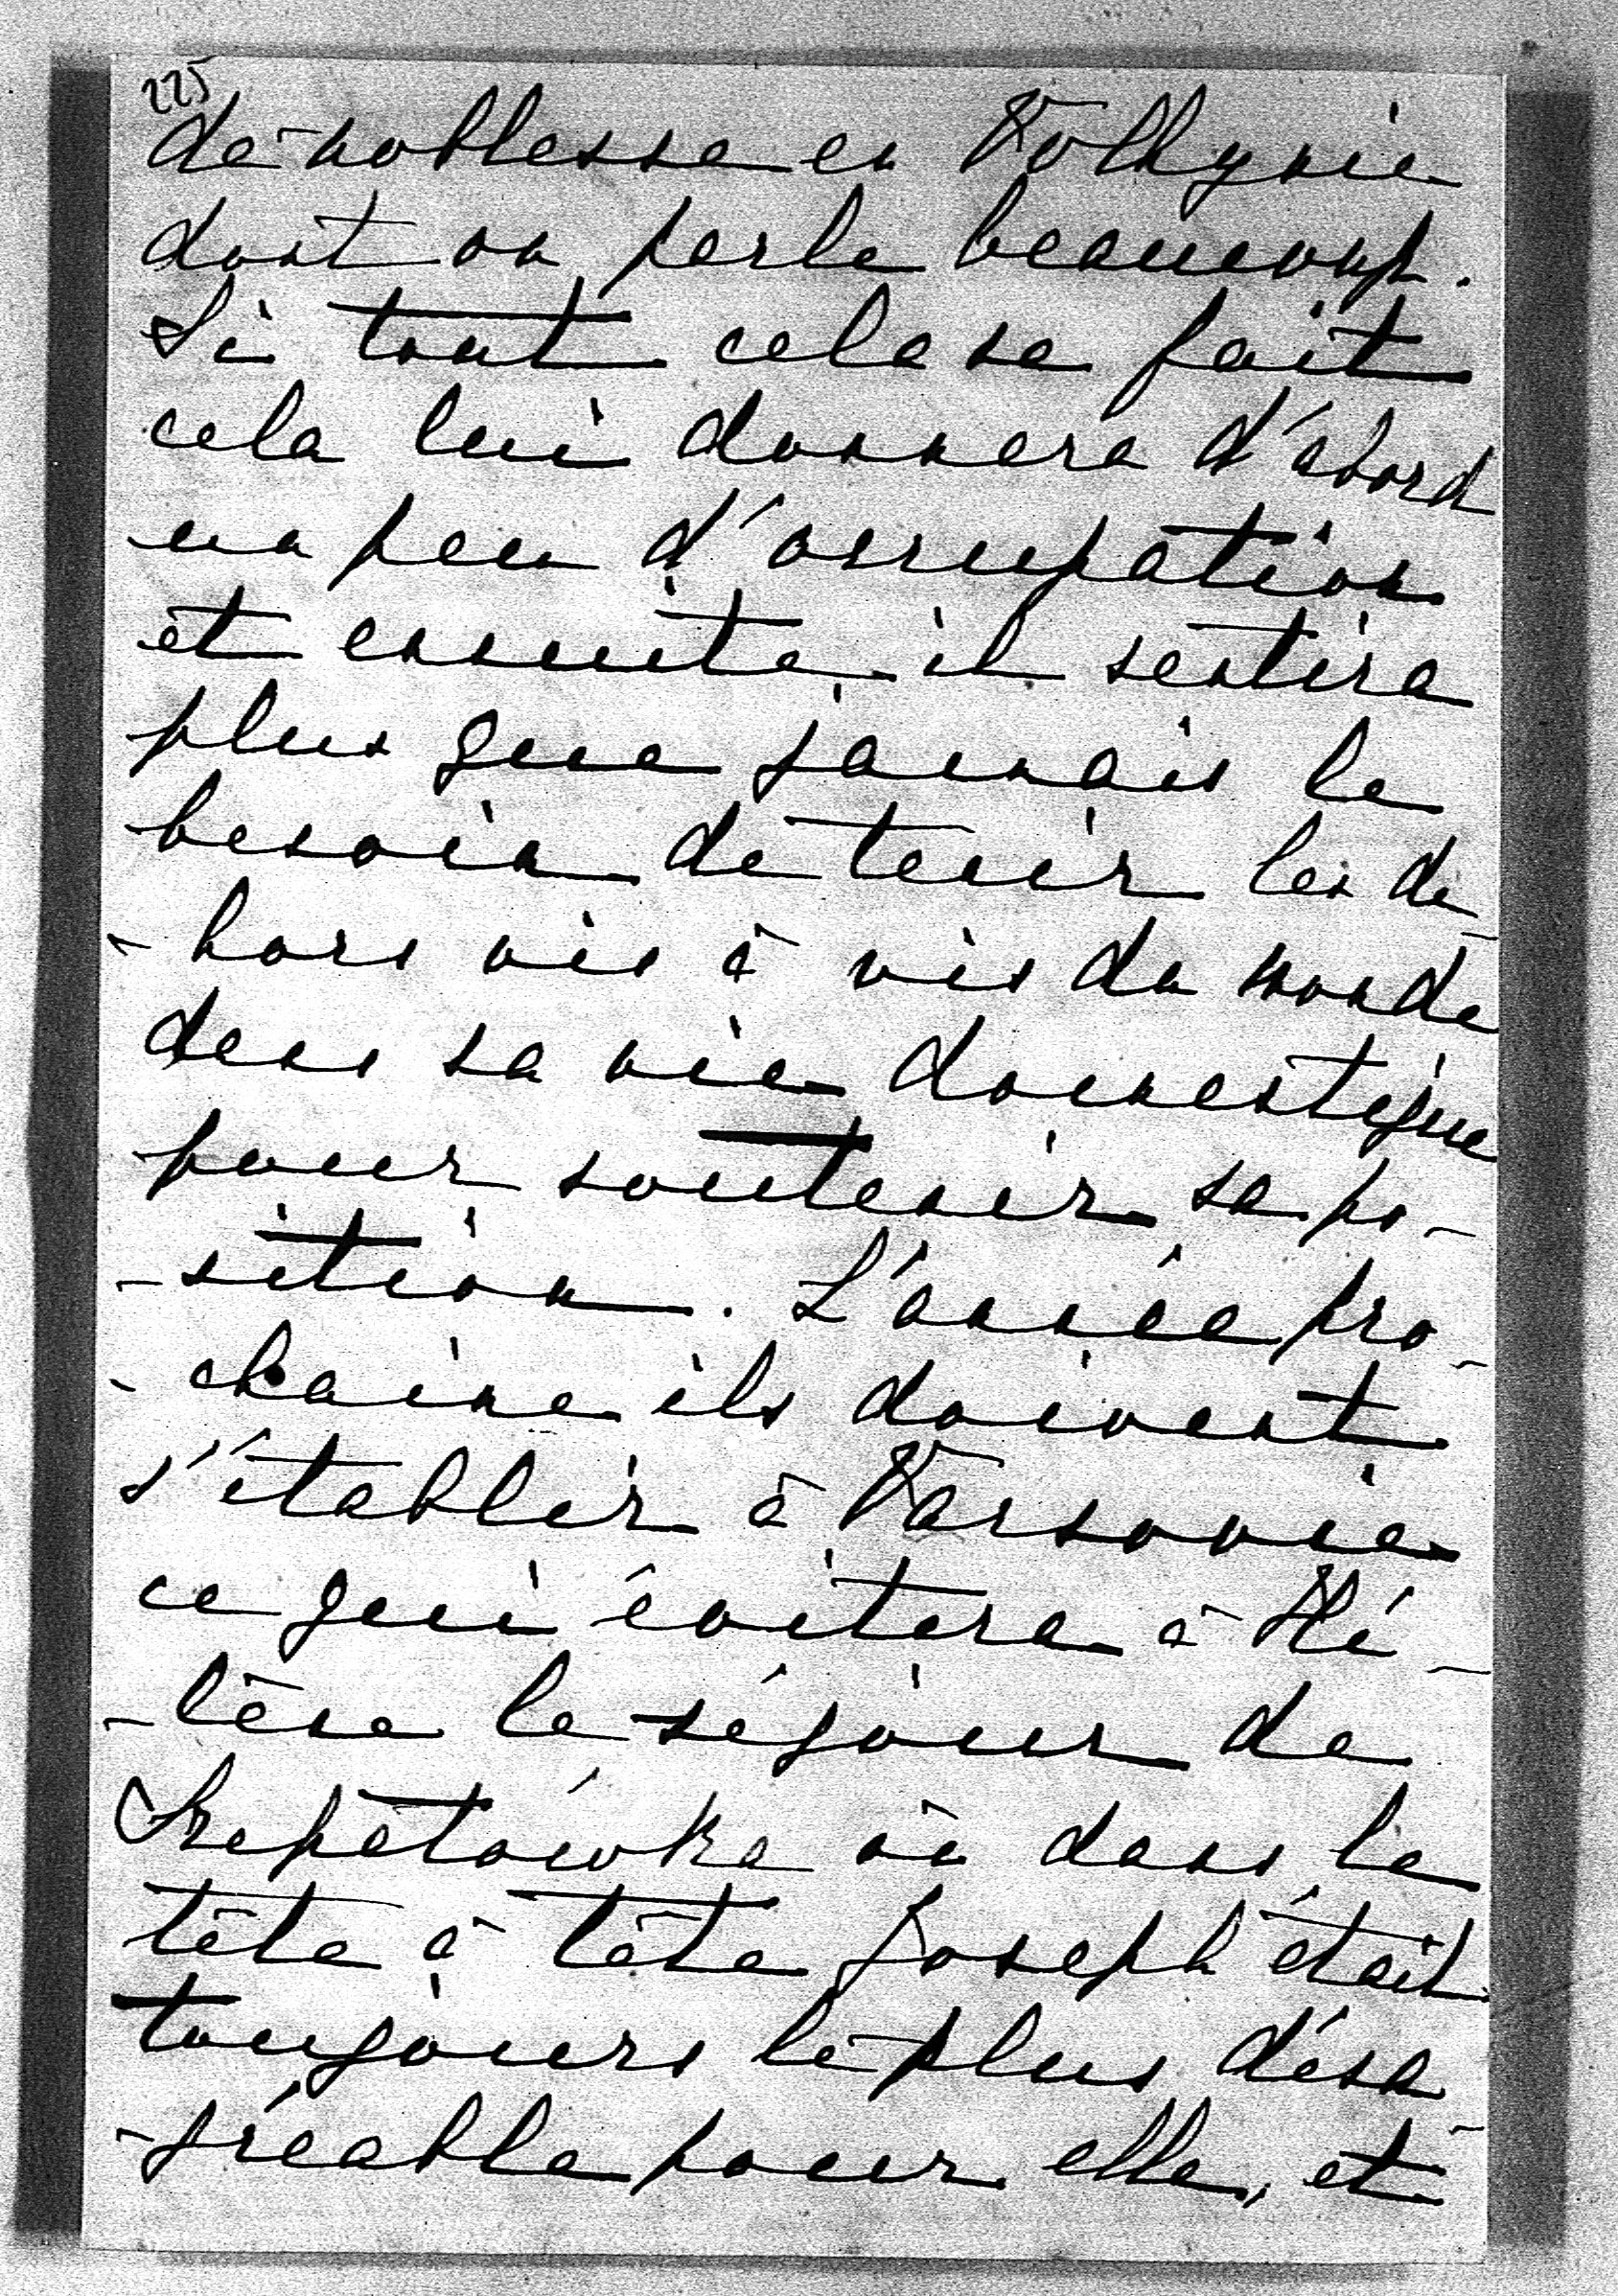 225
de noblesse en Volhynie
dont on parle beaucoup.
Si tout cela se fait
cela lui donnera d'abord
un peu d'occupation
et ensuite il sentira
plus que jamais le
besoin de tenir les de
- hors vis à vis du monde
dans sa vie domestique
pour soutenir sa po-
- sition. L'année pro-
- chaine ils doivent
s'établir à Varsovie
ce qui évitera à Hé-
- lène le séjour de
Szepetówka où dans le
tête à tête Joseph était
toujours le plus désa-
- gréable pour elle, et